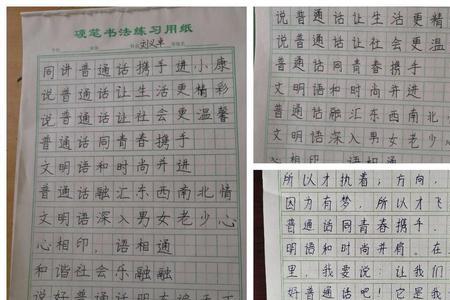 硬笔书法练习用纸
同讲普通话携手进小康
说普通话让生活更精彩
说普通话让社会更温馨
普通话同青春携手
文明语和时尚并进
普通话融汇东西南北情
文明语深入男女老少心
心相印，语相通
和谐社会乐融融
说普通话让生活更精
说普通话让社会更温
普通话同青春携手
文明语和时尚并进
普通话融汇东西南北
文明语深入男女老少
所以才执着；方向，
因为有梦，所以才飞
普通话同青春携手，
明语和时尚并肩。在
里，我要说：让我们
好普通话吧！它是我